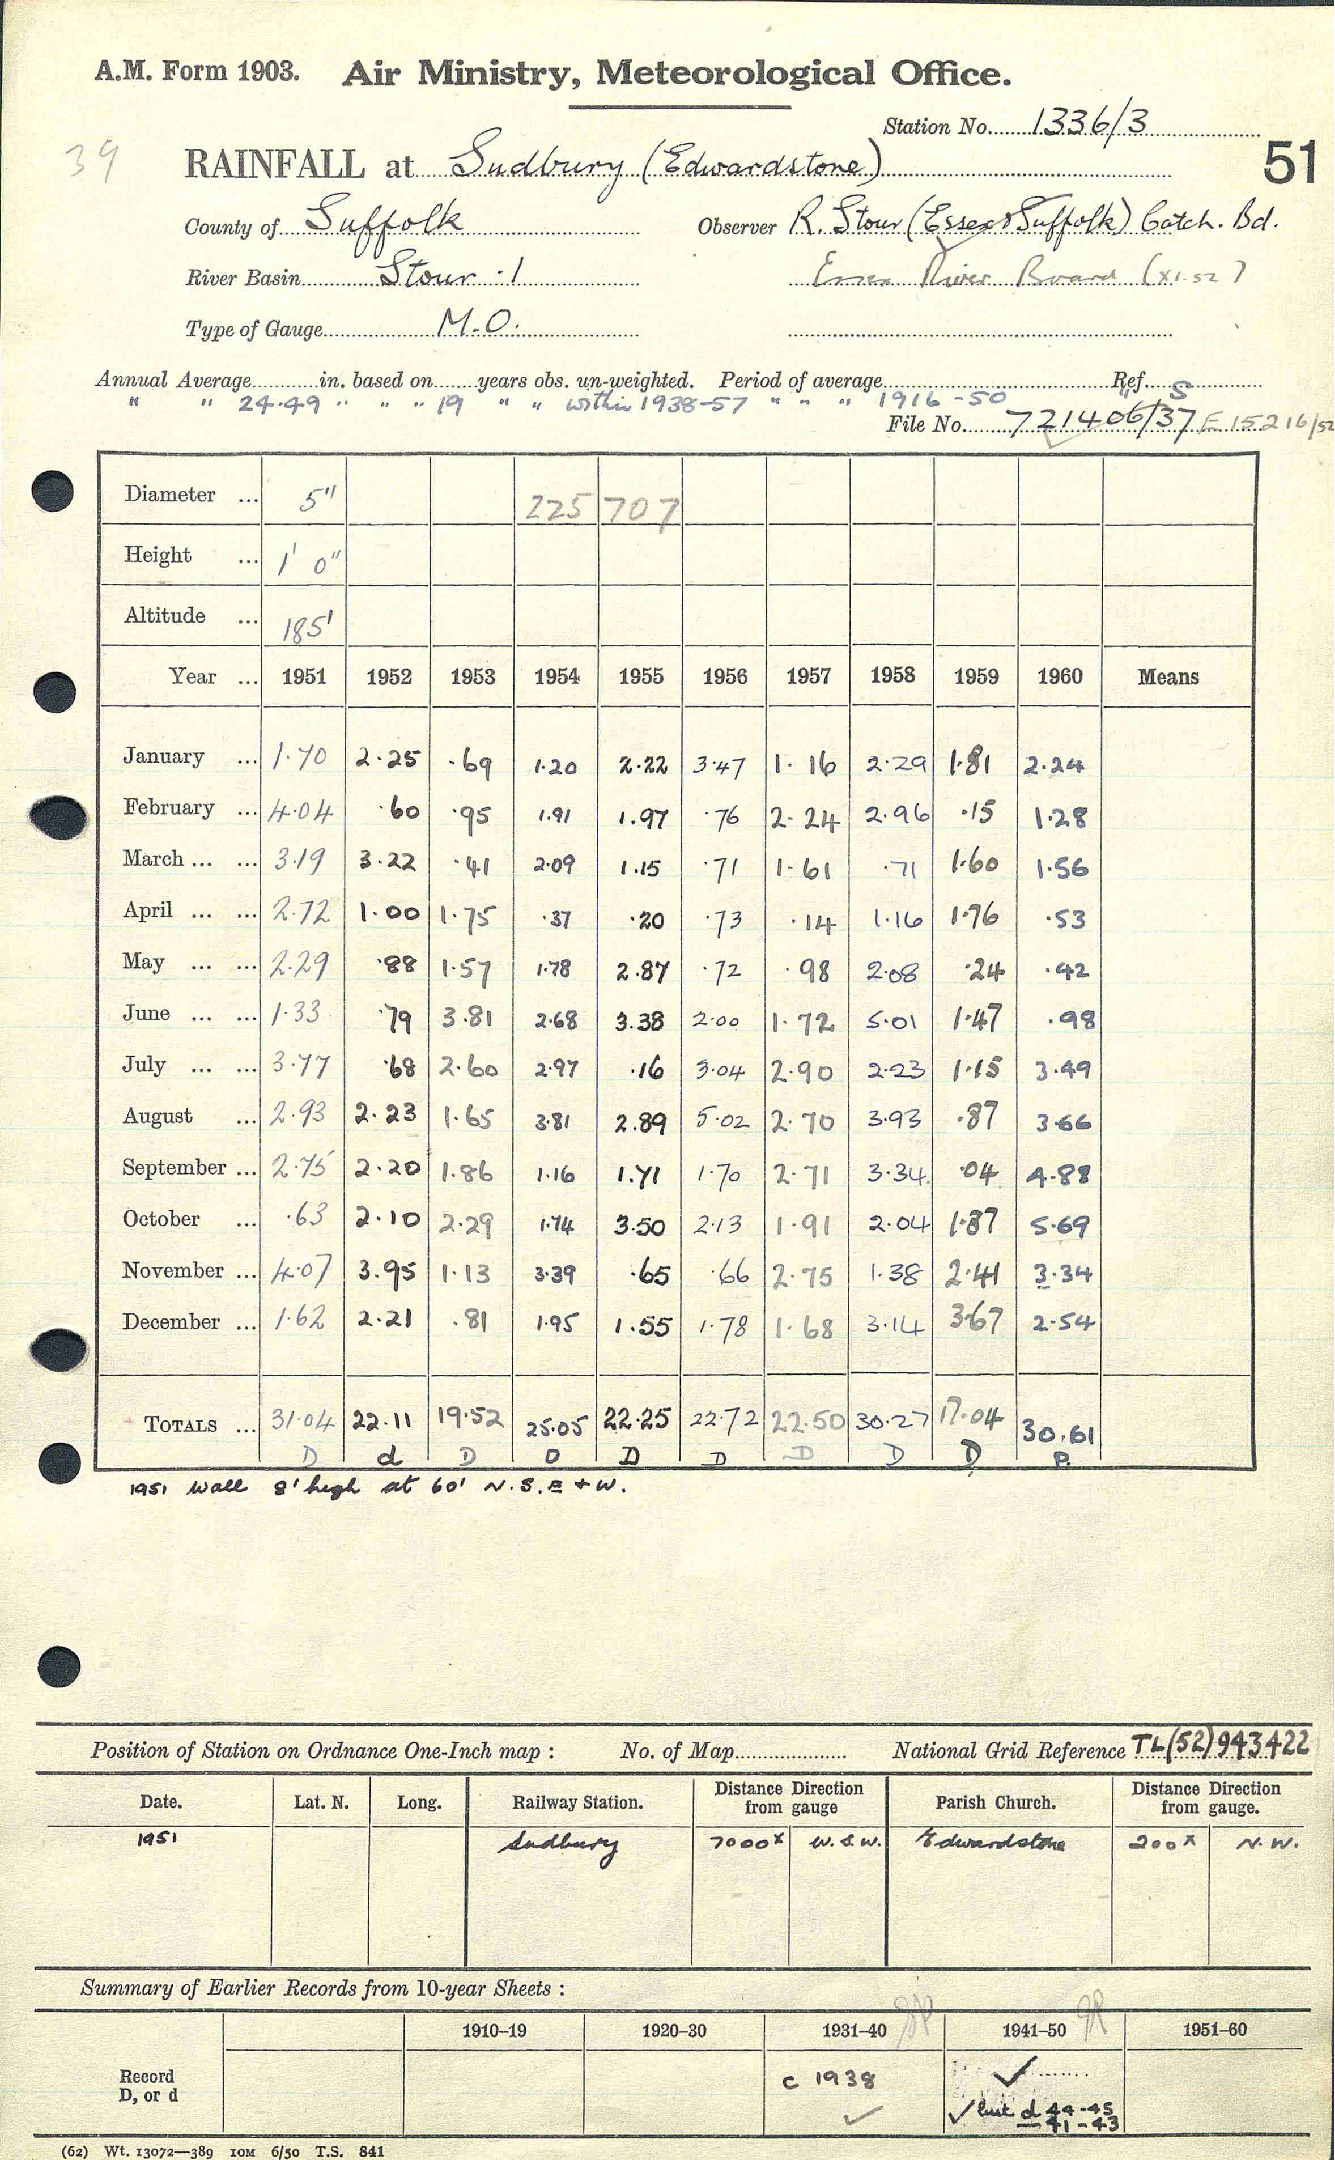 A.M. Form 1903. Air Ministry, Meteorological Office.
Station No. 1336/3
39 RAINFALL at Sudbury (Edwardstone) 51
County of Suffolk Observer R. Stour (Essex & Suffolk) Catch. Bd.
River Basin Stour ·1 Essex River Board (XI.52)
Type of Gauge M.O.
Annual Average in. based on years obs. un-weighted. Period of average Ref. S
" " 24.49 " " " 19 " " within 1938-57 " " " 1916-50 "
File No. 721406/37 E 15216/52
Diameter ... 5" 225 707
Height ... 1' 0"
Altitude ... 185'
Year ... 1951 1952 1953 1954 1955 1956 1957 1958 1959 1960 Means
January ... 1.70 2.25 .69 1.20 2.22 3.47 1.16 2.29 1.81 2.24
February ... 4.04 .60 .95 1.91 1.97 .76 2.24 2.96 .15 1.28
March ... ... 3.19 3.22 .41 2.09 1.15 .71 1.61 .71 1.60 1.56
April ... ... 2.72 1.00 1.75 .37 .20 .73 .14 1.16 1.76 .53
May ... ... 2.29 .88 1.57 1.78 2.87 .72 .98 2.08 .24 .42
June ... ... 1.33 .79 3.81 2.68 3.38 2.00 1.72 5.01 1.47 .98
July ... ... 3.77 .68 2.60 2.97 .16 3.04 2.90 2.23 1.15 3.49
August ... 2.93 2.23 1.65 3.81 2.89 5.02 2.70 3.93 .87 3.66
September ... 2.75 2.20 1.86 1.16 1.71 1.70 2.71 3.34 .04 4.88
October ... .63 2.10 2.29 1.74 3.50 2.13 1.91 2.04 1.87 5.69
November ... 4.07 3.95 1.13 3.39 .65 .66 2.75 1.38 2.41 3.34
December ... 1.62 2.21 .81 1.95 1.55 1.78 1.68 3.14 3.67 2.54
TOTALS ... 31.04 22.11 19.52 25.05 22.25 22.72 22.50 30.27 17.04 30.61
D d D D D D D D D D.
1951 Wall 8' high at 60' N.S.E + W.
Position of Station on Ordnance One-Inch map : No. of Map National Grid Reference TL(52)943422
Date. Lat. N. Long. Railway Station. Distance Direction from gauge Parish Church. Distance Direction from gauge.
1951 Sudbury 7000x W.S.W. Edwardstone 200x N.W.
Summary of Earlier Records from 10-year Sheets :
1910–19 1920–30 1931–40 1941–50 1951–60
Record D, or d c 1938 ✓ ✓ ✓ but d 44-45 41-43
(62) Wt. 13072—389 10M 6/50 T.S. 841